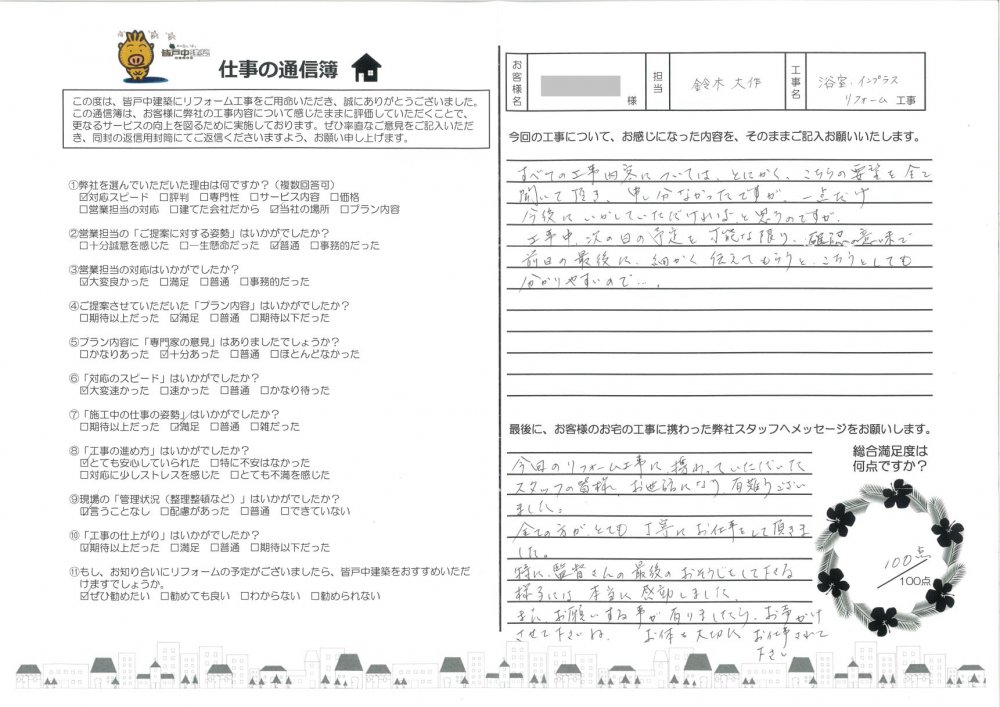 皆戸中建築
仕事の通信簿
この度は、皆戸中建築にリフォーム工事をご用命いただき、誠にありがとうございました。
この通信簿は、お客様に弊社の工事内容について感じたままに評価していただくことで、
更なるサービスの向上を図るために実施しております。ぜひ率直なご意見をご記入いただ
き、同封の返信用封筒にてご返信くださいますよう、お願い申し上げます。
①弊社を選んでいただいた理由は何ですか？（複数回答可）
☑対応スピード □評判 □専門性 □サービス内容 □価格
□営業担当の対応 □建てた会社だから ☑当社の場所 □プラン内容
②営業担当の「ご提案に対する姿勢」はいかがでしたか？
□十分誠意を感じた □一生懸命だった ☑普通 □事務的だった
③営業担当の対応はいかがでしたか？
☑大変良かった □満足 □普通 □事務的だった
④ご提案させていただいた「プラン内容」はいかがでしたか？
□期待以上だった ☑満足 □普通 □期待以下だった
⑤プラン内容に「専門家の意見」はありましたでしょうか？
□かなりあった ☑十分あった □普通 □ほとんどなかった
⑥「対応のスピード」はいかがでしたか？
☑大変速かった □速かった □普通 □かなり待った
⑦「施工中の仕事の姿勢」はいかがでしたか？
□期待以上だった ☑満足 □普通 □雑だった
⑧「工事の進め方」はいかがでしたか？
☑とても安心していられた □特に不安はなかった
□対応に少しストレスを感じた □とても不満を感じた
⑨現場の「管理状況（整理整頓など）」はいかがでしたか？
☑言うことなし □配慮があった □普通 □できていない
⑩「工事の仕上がり」はいかがでしたか？
☑期待以上だった □満足 □普通 □期待以下だった
⑪もし、お知り合いにリフォームの予定がございましたら、皆戸中建築をおすすめいただ
けますでしょうか。
☑ぜひ勧めたい □勧めても良い □わからない □勧められない
お客様名 様 担当 鈴木 大作 工事名 浴室、インプラス
リフォーム 工事
今回の工事について、お感じになった内容を、そのままご記入お願いいたします。
すべての工事内容については、とにかく、こちらの要望を全て
聞いて頂き、申し分なかったですが、一点だけ
今後にいかしていただければ、と思うのですが、
工事中、次の日の予定を可能な限り、確認の意味で
前日の最後に、細かく伝えてもらうと、こちらとしても
分かりやすいので…。
最後に、お客様のお宅の工事に携わった弊社スタッフへメッセージをお願いします。
今回のリフォーム工事に携わっていただいた
スタッフの皆様、お世話になり有難うござい
ました。
全ての方が、とても丁寧にお仕事をして頂きま
した。
特に、監督さんの最後のおそうじをして下さる
様子には本当に感動しました。
また、お願いする事が有りましたら、お声がけ
させて下さいね。 お体を大切にお仕事されて
下さい
総合満足度は
何点ですか？
100点
100点